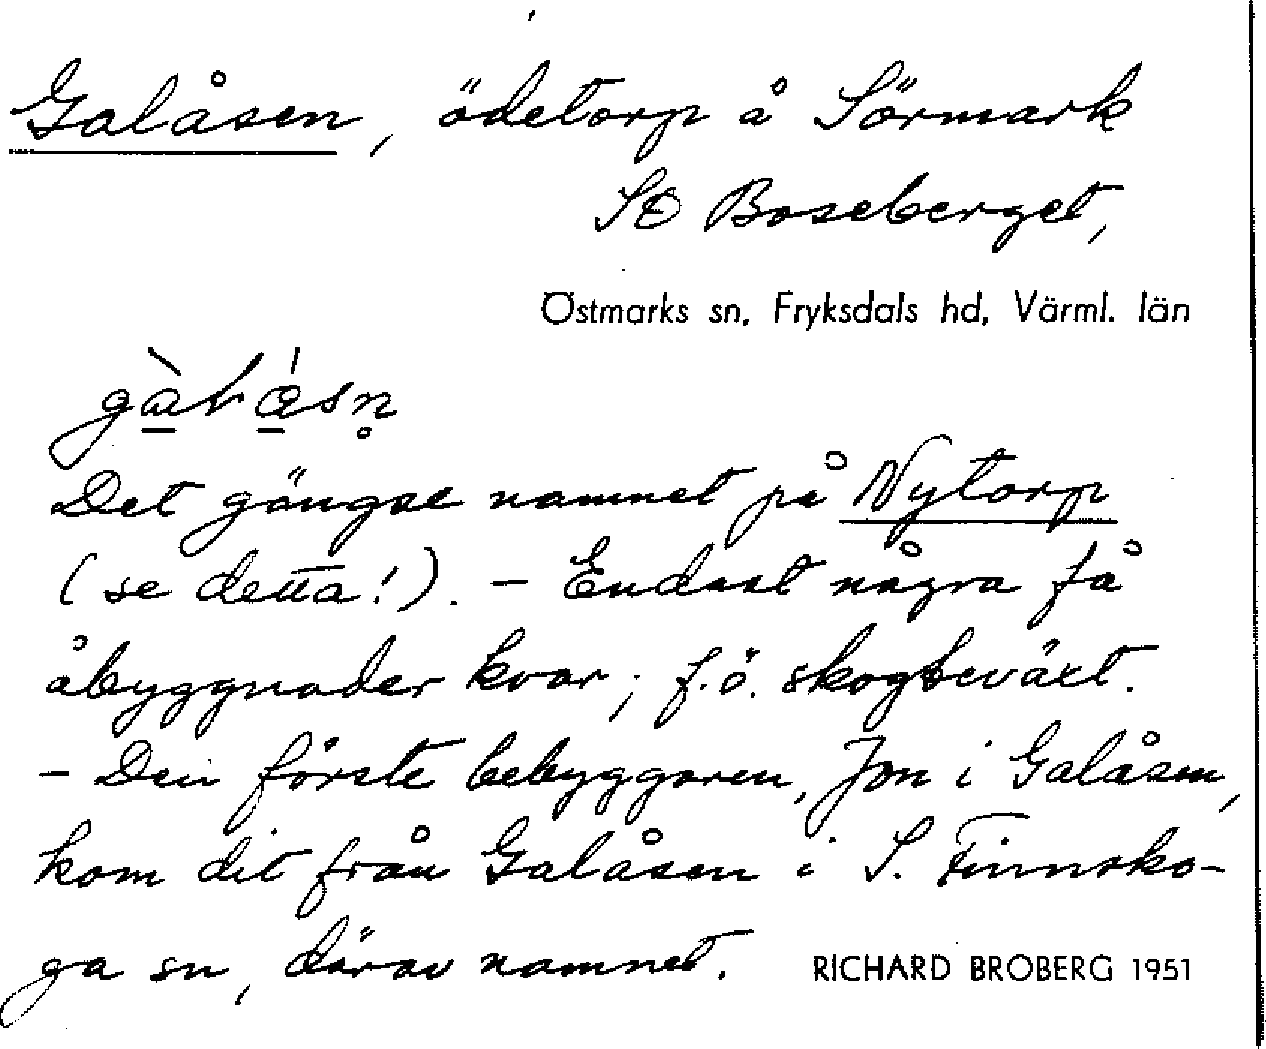 Galåsen, ödetorp å Sörmark
SÖ Boseberget,
Östmarks sn, Fryksdals hd, Värml. län
Det gängse namnet på Nytorp
(se detta!). – Endast några få
åbyggnader kvar; f.ö. skogbeväxt.
– Den förste bebyggaren, Jon i Galåsen,
kom dit från Galåsen i S. Finnsko-
ga sn, därav namnet. RICHARD BROBERG 1951